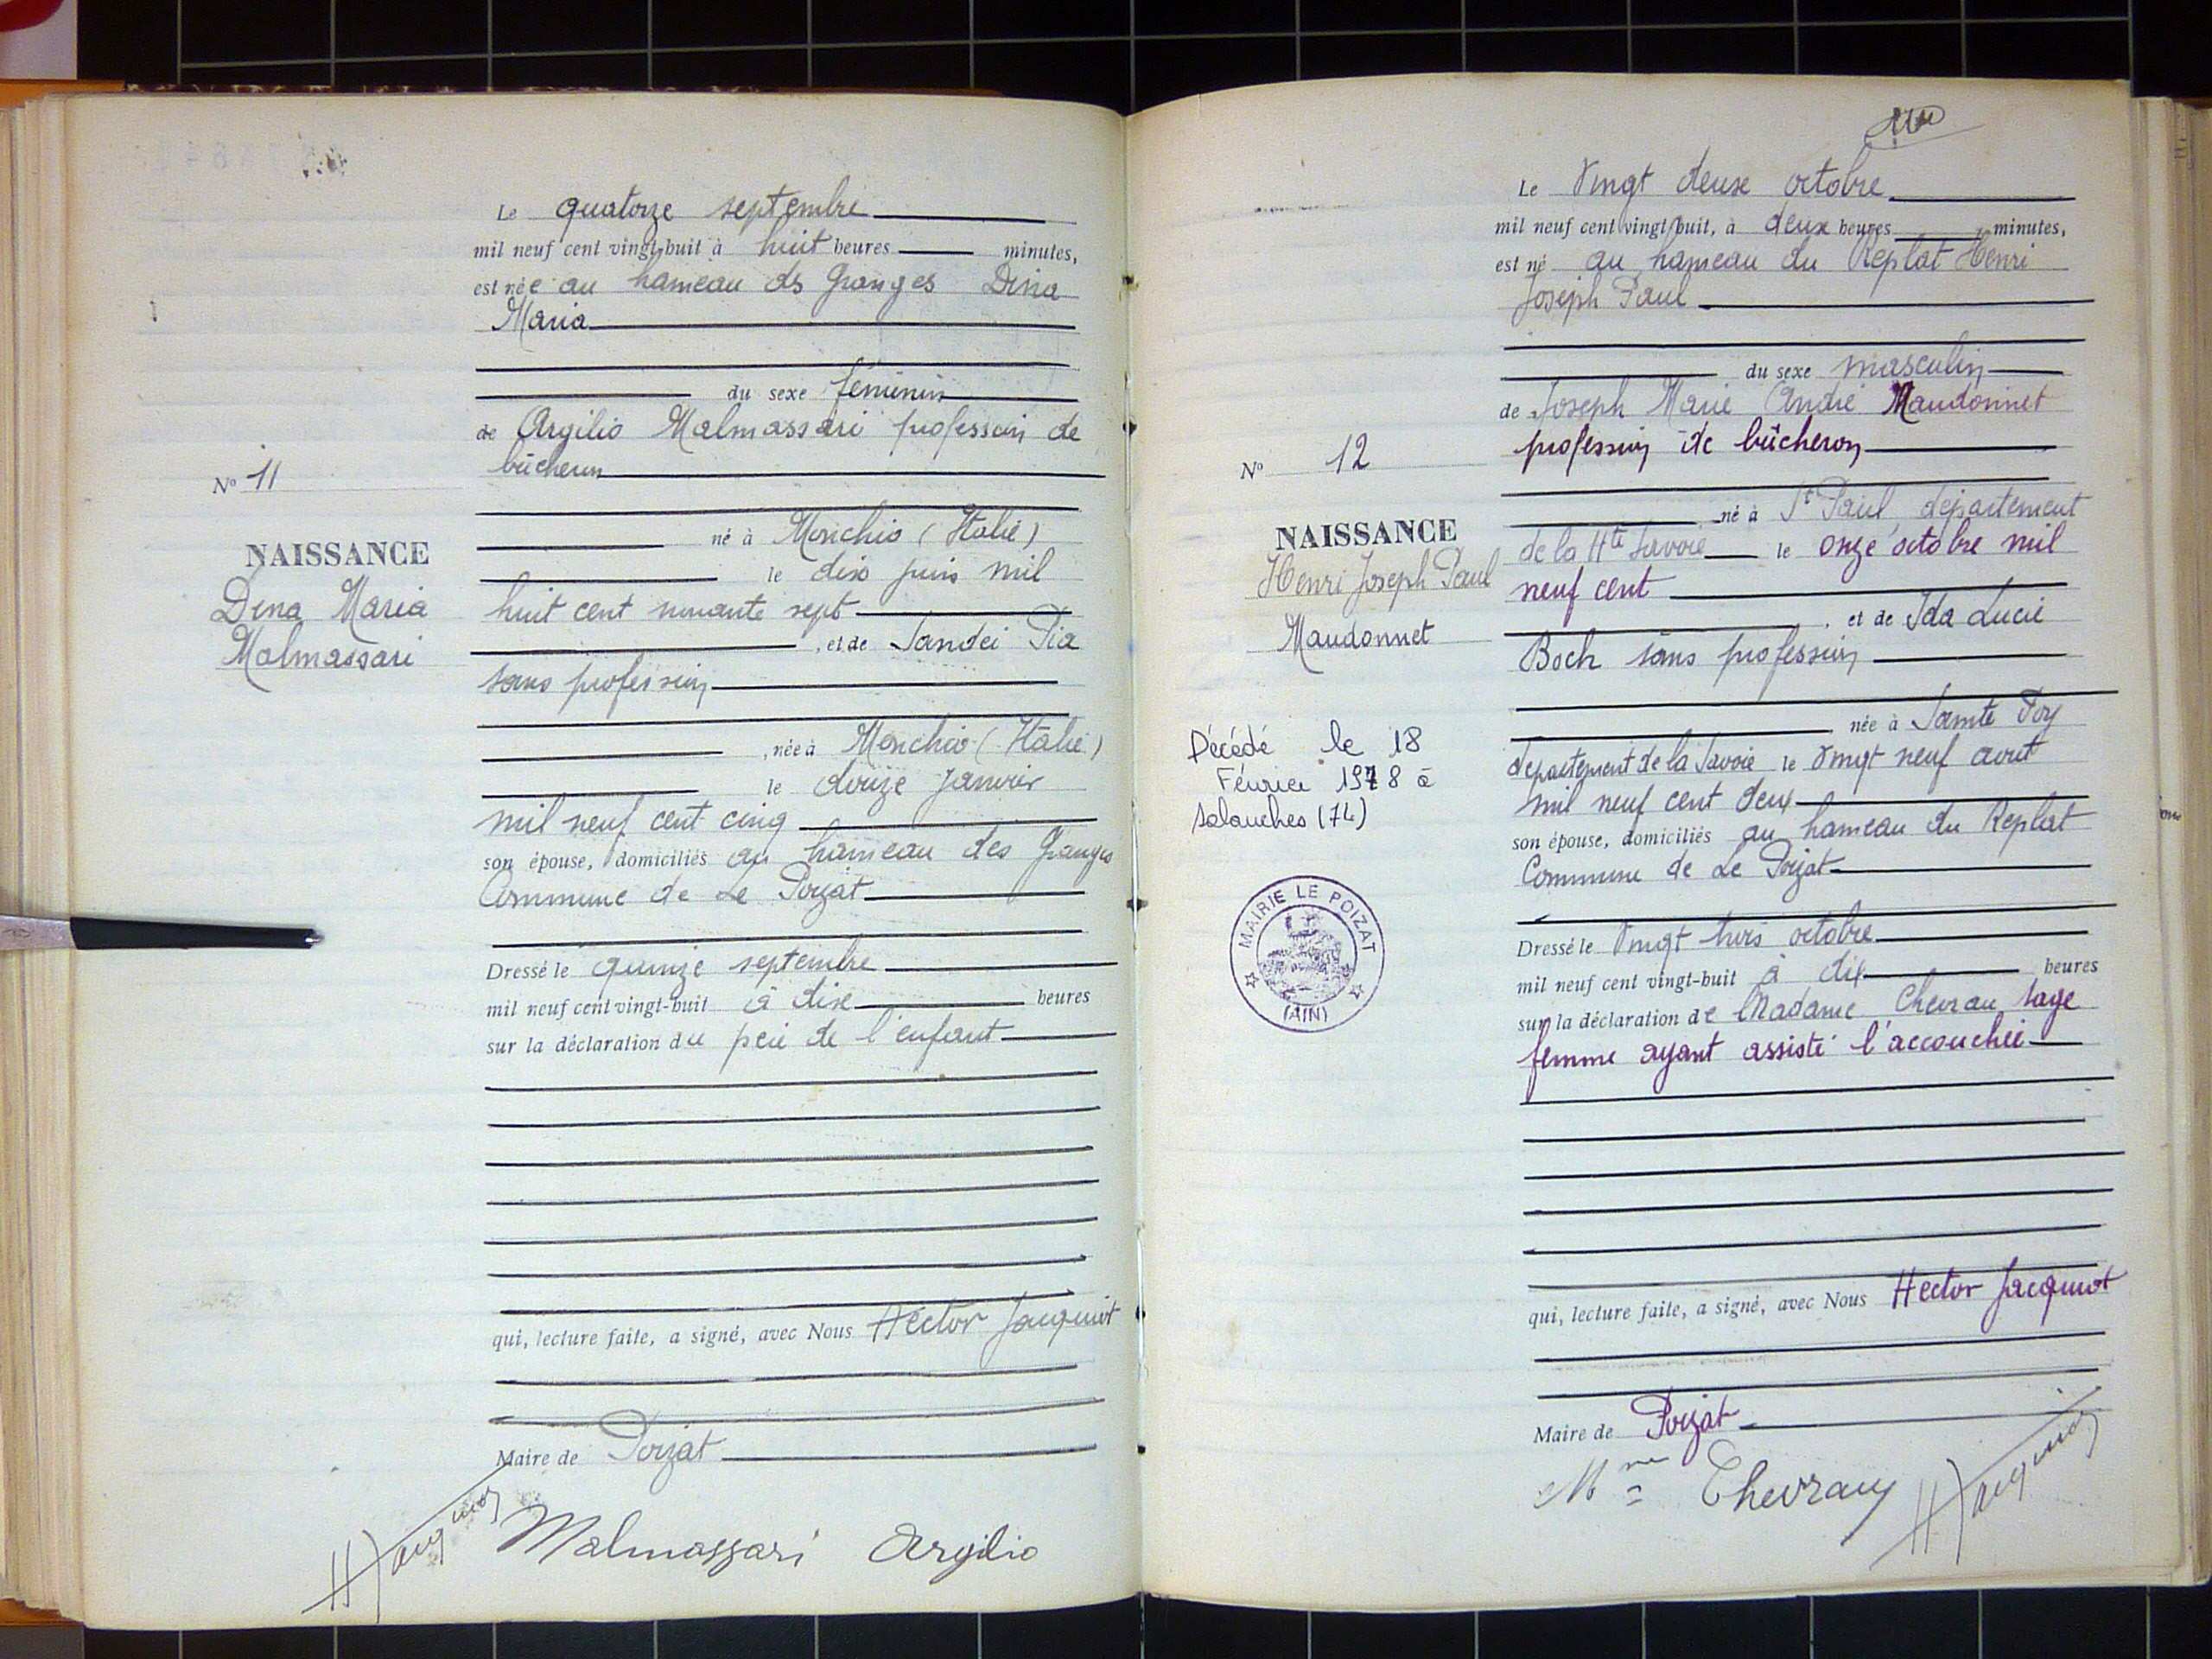 Le quatorze septembre
mil neuf cent vingt-huit à huit heures minutes,
est née au hameau ds Granges Dina
Maria
du sexe féminin
de Argilio Malmassari profession de
bûcheron
N° 11
né à Monchio (Italie)
NAISSANCE
le dix juin mil
Dina Maria
huit cent nonante sept
Malmassari
, et de Sandei Pia
sans profession
, née à Monchio (Italie)
le douze janvier
mil neuf cent cinq
son épouse, domiciliés au hameau des Granges
Commune de Le Poizat
Dressé le quinze septembre
mil neuf cent vingt-huit à dix heures
sur la déclaration du père de l'enfant
qui, lecture faite, a signé, avec Nous Hector Jacquiot
Maire de Poizat
Malmassari Argilio
Le Vingt deux octobre
mil neuf cent vingt-huit, à deux heures minutes,
est né au hameau du Replat Henri
Joseph Paul
du sexe masculin
de Joseph Marie André Maudonnet
profession de bûcheron
N° 12
né à St Paul département
NAISSANCE
de la Hte Savoie le onze octobre mil
Henri Joseph Paul
neuf cent
Maudonnet
, et de Ida Lucie
Boch sans profession
née à Sainte Foy
département de la Savoie le vingt neuf août
mil neuf cent deux
son épouse, domiciliés au hameau du Replat
Commune de Le Poizat
Décédé le 18
Février 1978 à
Salanches (74)
MAIRIE LE POIZAT
(AIN)
Dressé le Vingt trois octobre
mil neuf cent vingt-huit à dix heures
sur la déclaration de Madame Chevrau sage
femme ayant assisté l'accouchée
qui, lecture faite, a signé, avec Nous Hector Jacquiot
Maire de Poizat
Mme Chevrau